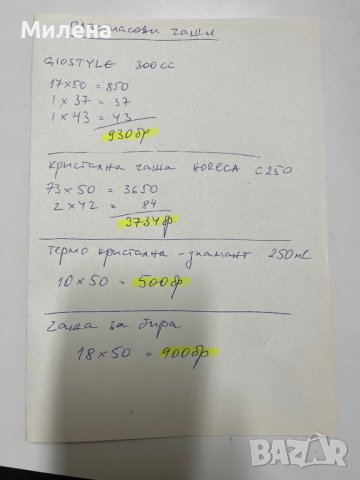 Милена
Пластмасови чаши
GIOSTYLE 300CC
17x50 = 850
1 x 37 = 37
1 x 43 = 43
930бр
Кристална чаша HORECA C250
73 x 50 = 3650
2 x 42 = 84
3734бр
Термо кристална - диамант 250мл
10 x 50 = 500бр
Чаша за бира
18 x 50 = 900бр
BAZAR